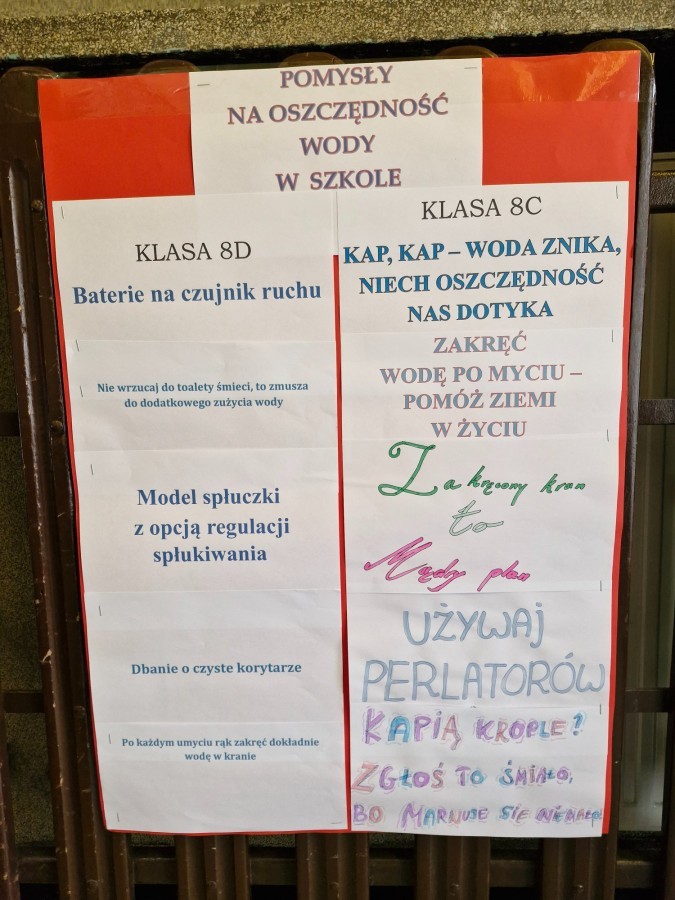 POMYSŁY
NA OSZCZĘDNOŚĆ
WODY
W SZKOLE
KLASA 8D
Baterie na czujnik ruchu
Nie wrzucaj do toalety śmieci, to zmusza
do dodatkowego zużycia wody
Model spłuczki
z opcją regulacji
spłukiwania
Dbanie o czyste korytarze
Po każdym umyciu rąk zakręć dokładnie
wodę w kranie
KLASA 8C
KAP, KAP – WODA ZNIKA,
NIECH OSZCZĘDNOŚĆ
NAS DOTYKA
ZAKRĘĆ
WODĘ PO MYCIU –
POMÓŻ ZIEMI
W ŻYCIU
Zakręcony kran
to
Mądry plan
UŻYWAJ
PERLATORÓW
KAPIĄ KROPLE?
ZGŁOŚ TO ŚMIAŁO,
BO MARNUJE SIĘ NIEMAŁO!